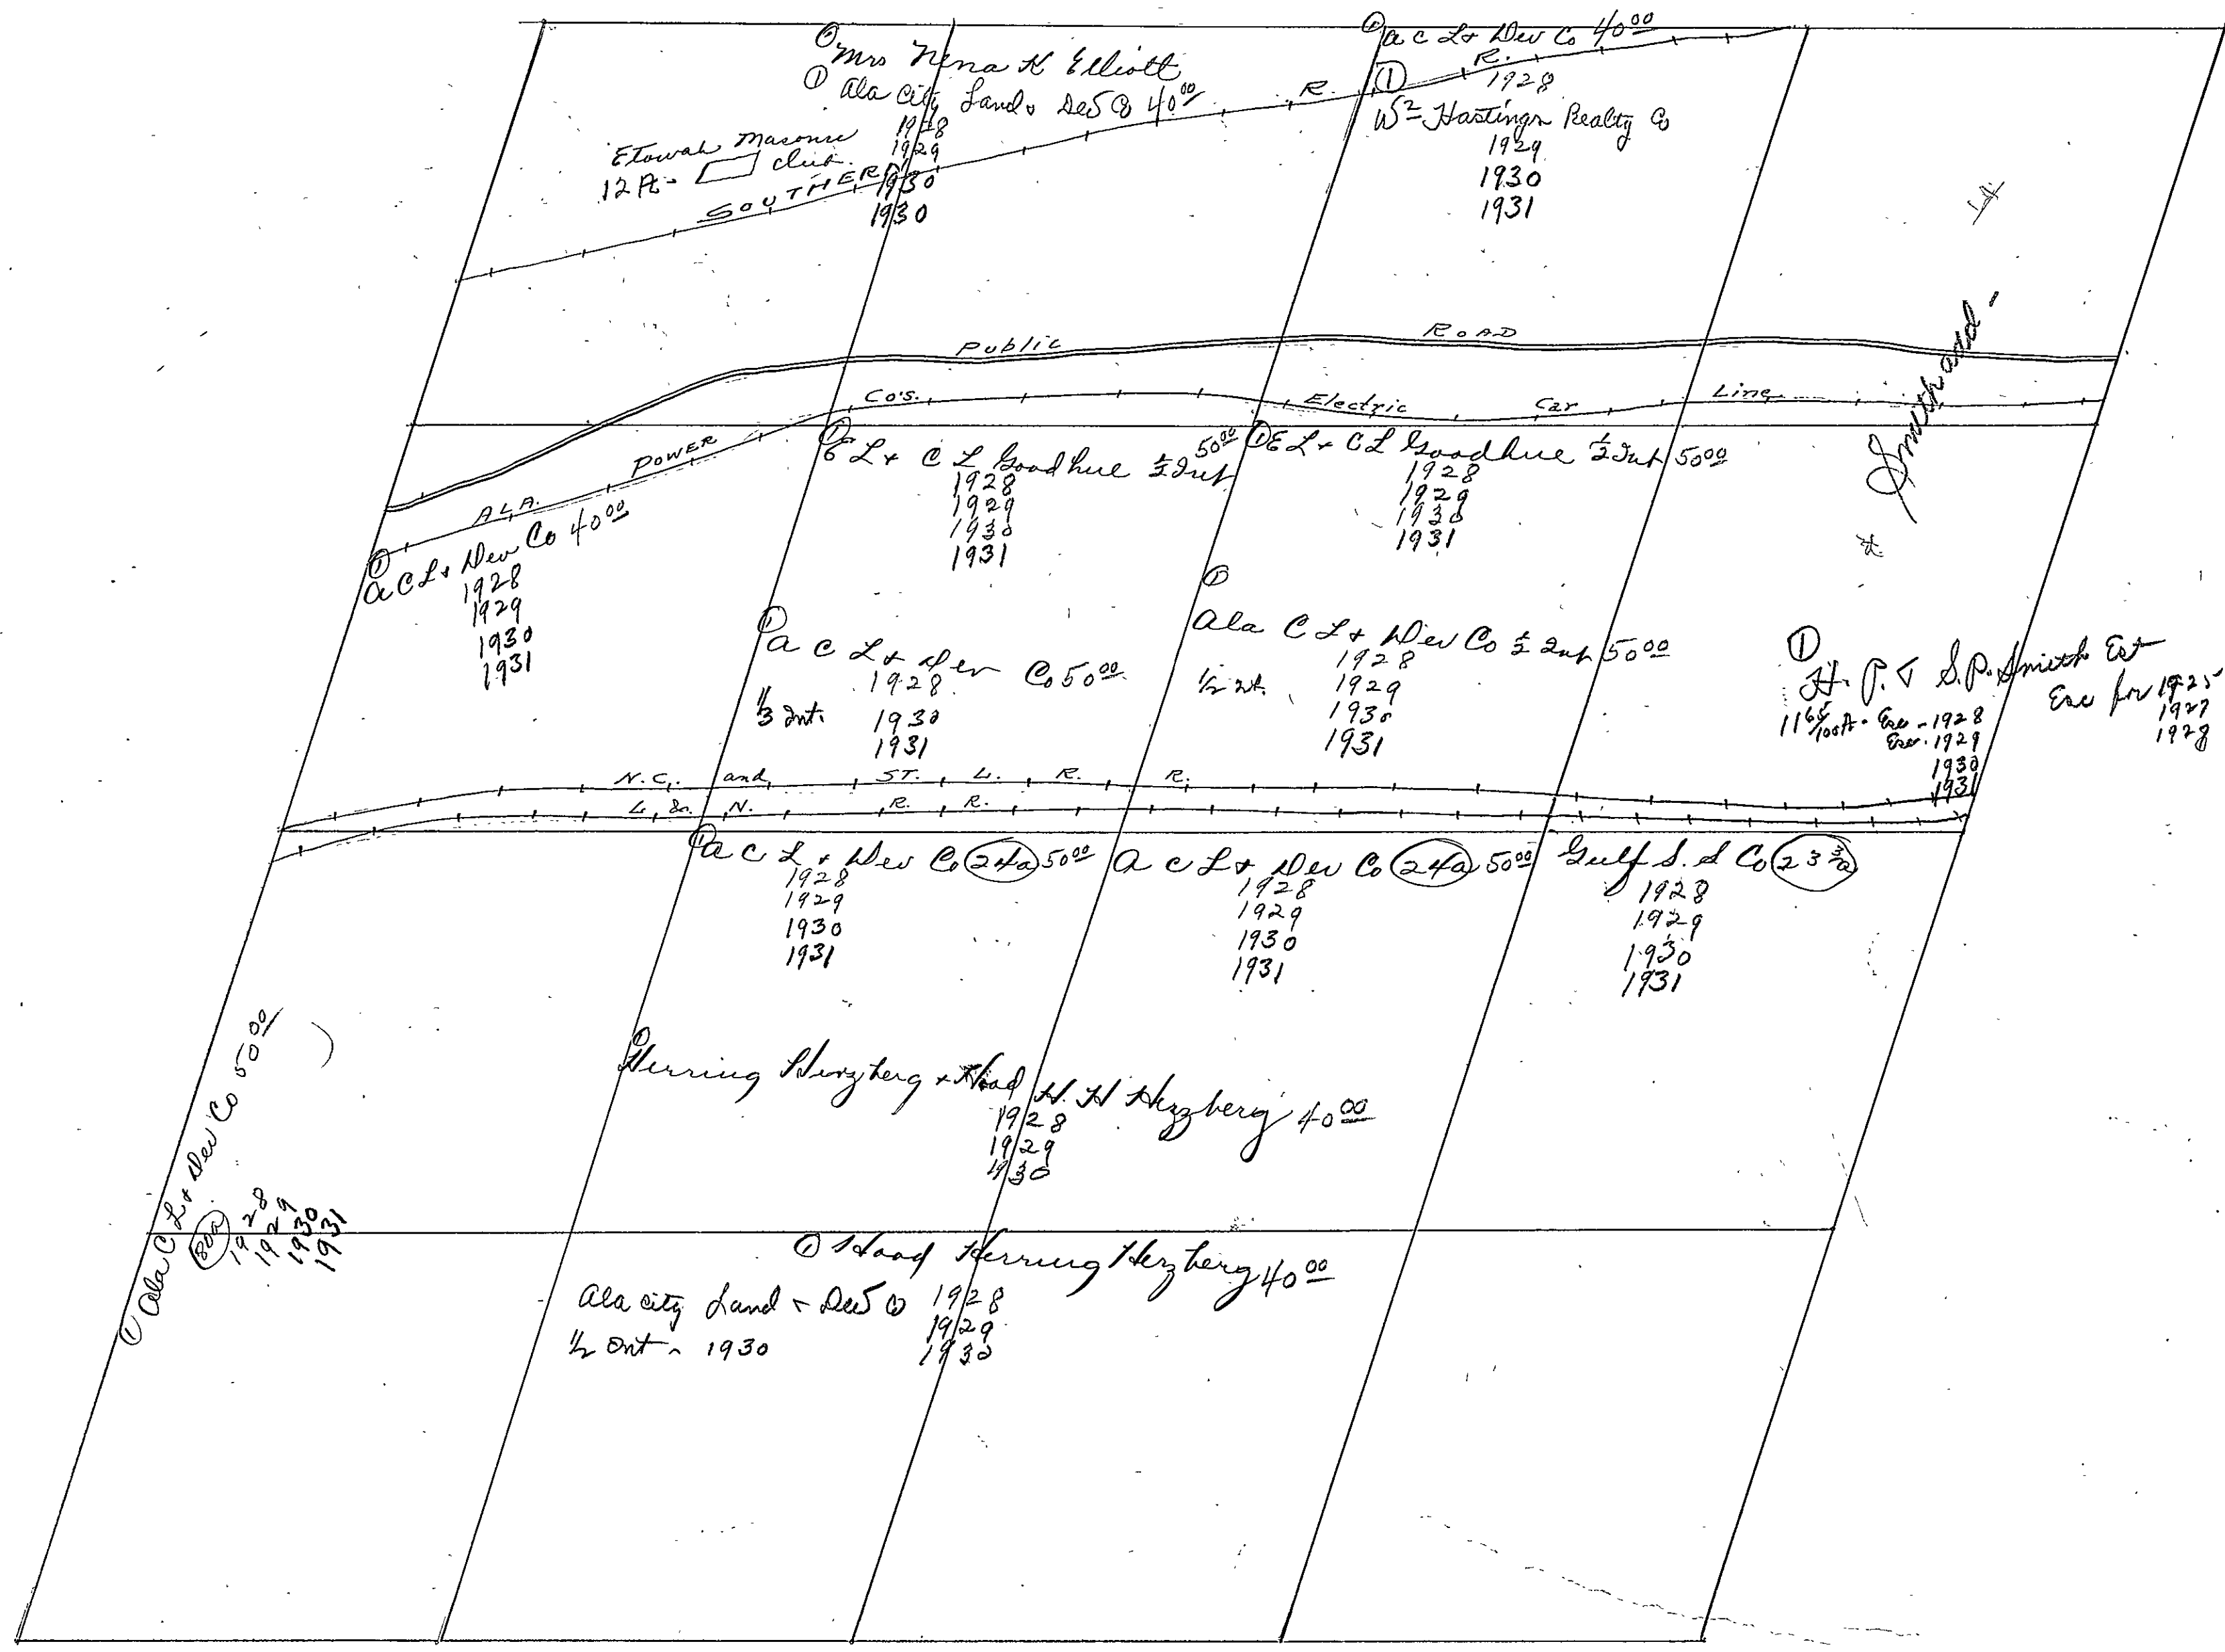 Mrs Nena K Elliott
① Ala City Land & Dev Co 40⁰⁰
1928
1929
1930
1930
Etowah Masonic
Club.
12 A-
SOUTHERN R. R.
① A C L & Dev Co 40⁰⁰
①
1928
W² Hastings Realty Co
1929
1930
1931
Public ROAD
ALA. POWER Co's. Electric Car Line
Smith add.
① A C L & Dev Co 40⁰⁰
1928
1929
1930
1931
① E L & C L Goodhue ½ Int 50⁰⁰
1928
1929
1930
1931
① E L & C L Goodhue ½ Int 50⁰⁰
1928
1929
1930
1931
① A C L & Dev Co 50⁰⁰
1928
⅓ Int. 1930
1931
①
Ala C L & Dev Co ½ Int 50⁰⁰
1928
½ Int. 1929
1930
1931
①
H. P. & S. P. Smith Est
Esc for 1925
1927
1928
11 65/100 A - Esc - 1928
Esc. 1929
1930
1931
N.C. and ST. L. R. R.
L. & N. R. R.
① A C L & Dev Co 24a 50⁰⁰
1928
1929
1930
1931
A C L & Dev Co 24a 50⁰⁰
1928
1929
1930
1931
Gulf S. S Co 23 ³a
1928
1929
1930
1931
① Herring Herzberg & Hood H. H Herzberg 40⁰⁰
1928
1929
1930
① Ala C L & Dev Co 50⁰⁰
80a
1928
1929
1930
1931
① Hood Herring Herzberg 40⁰⁰
Ala City Land & Dev Co 1928
1929
½ Int - 1930 1930